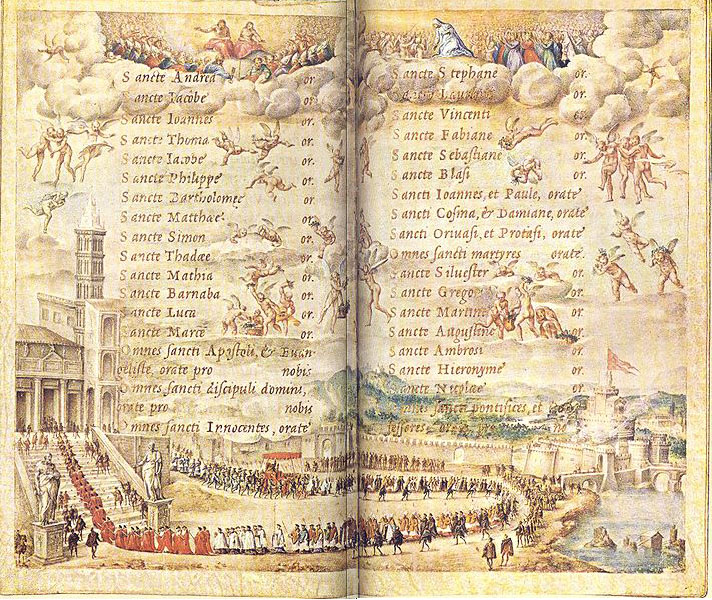 Sancte Andrea or.
Sancte Iacobe or.
Sancte Ioannes or.
Sancte Thoma or.
Sancte Iacobe or.
Sancte Philippe or.
Sancte Bartholomee or.
Sancte Matthaee or.
Sancte Simon or.
Sancte Thadae or.
Sancte Mathia or.
Sancte Barnaba or.
Sancte Luca or.
Sancte Marce or.
Omnes sancti Apostoli, & Euan-
geliste, orate pro nobis
Omnes sancti discipuli domini,
orate pro nobis
Omnes sancti Innocentes, orate
Sancte Stephane or.
Sancte or.
Sancte Vincenti or.
Sancte Fabiane or.
Sancte Sebastiane or.
Sancte Blasi or.
Sancti Ioannes, et Paule, orate
Sancti Cosma, & Damiane, orate
Sancti Geruasi, et Protasi, orate
Omnes sancti martyres orate.
Sancte Siluester or.
Sancte Grego or.
Sancte Martine or.
Sancte Augustine or.
Sancte Ambrosi or.
Sancte Hieronyme or.
Sancte Nicolae or.
Omnes sancti pontifices, et